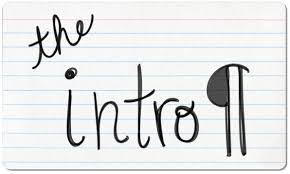 the
intro¶